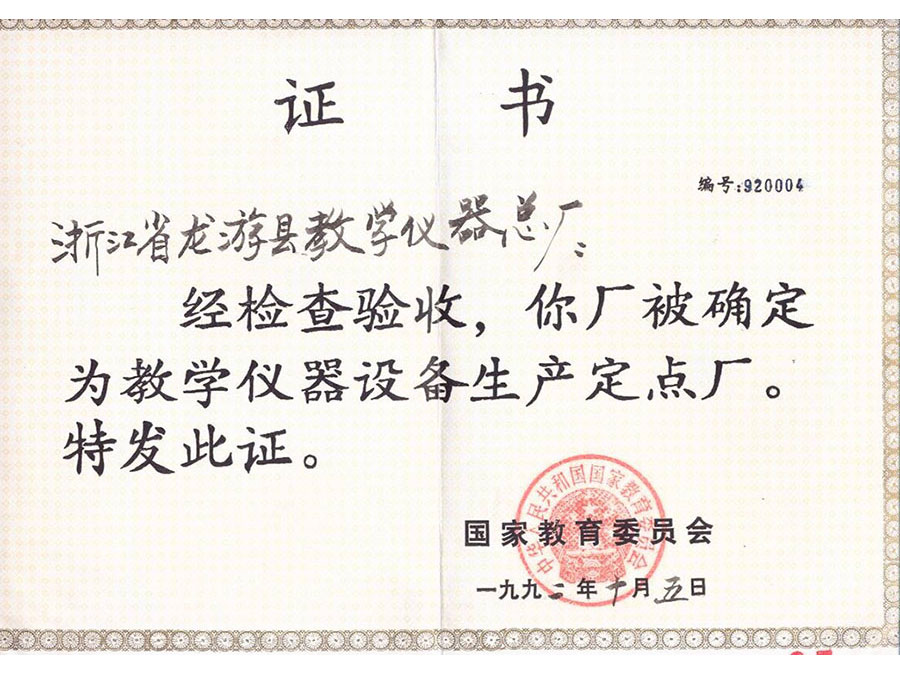 证 书
编号:920004
浙江省龙游县教学仪器总厂:
经检查验收，你厂被确定
为教学仪器设备生产定点厂。
特发此证。
中华人民共和国国家教育委员会
国家教育委员会
一九九二年十月五日